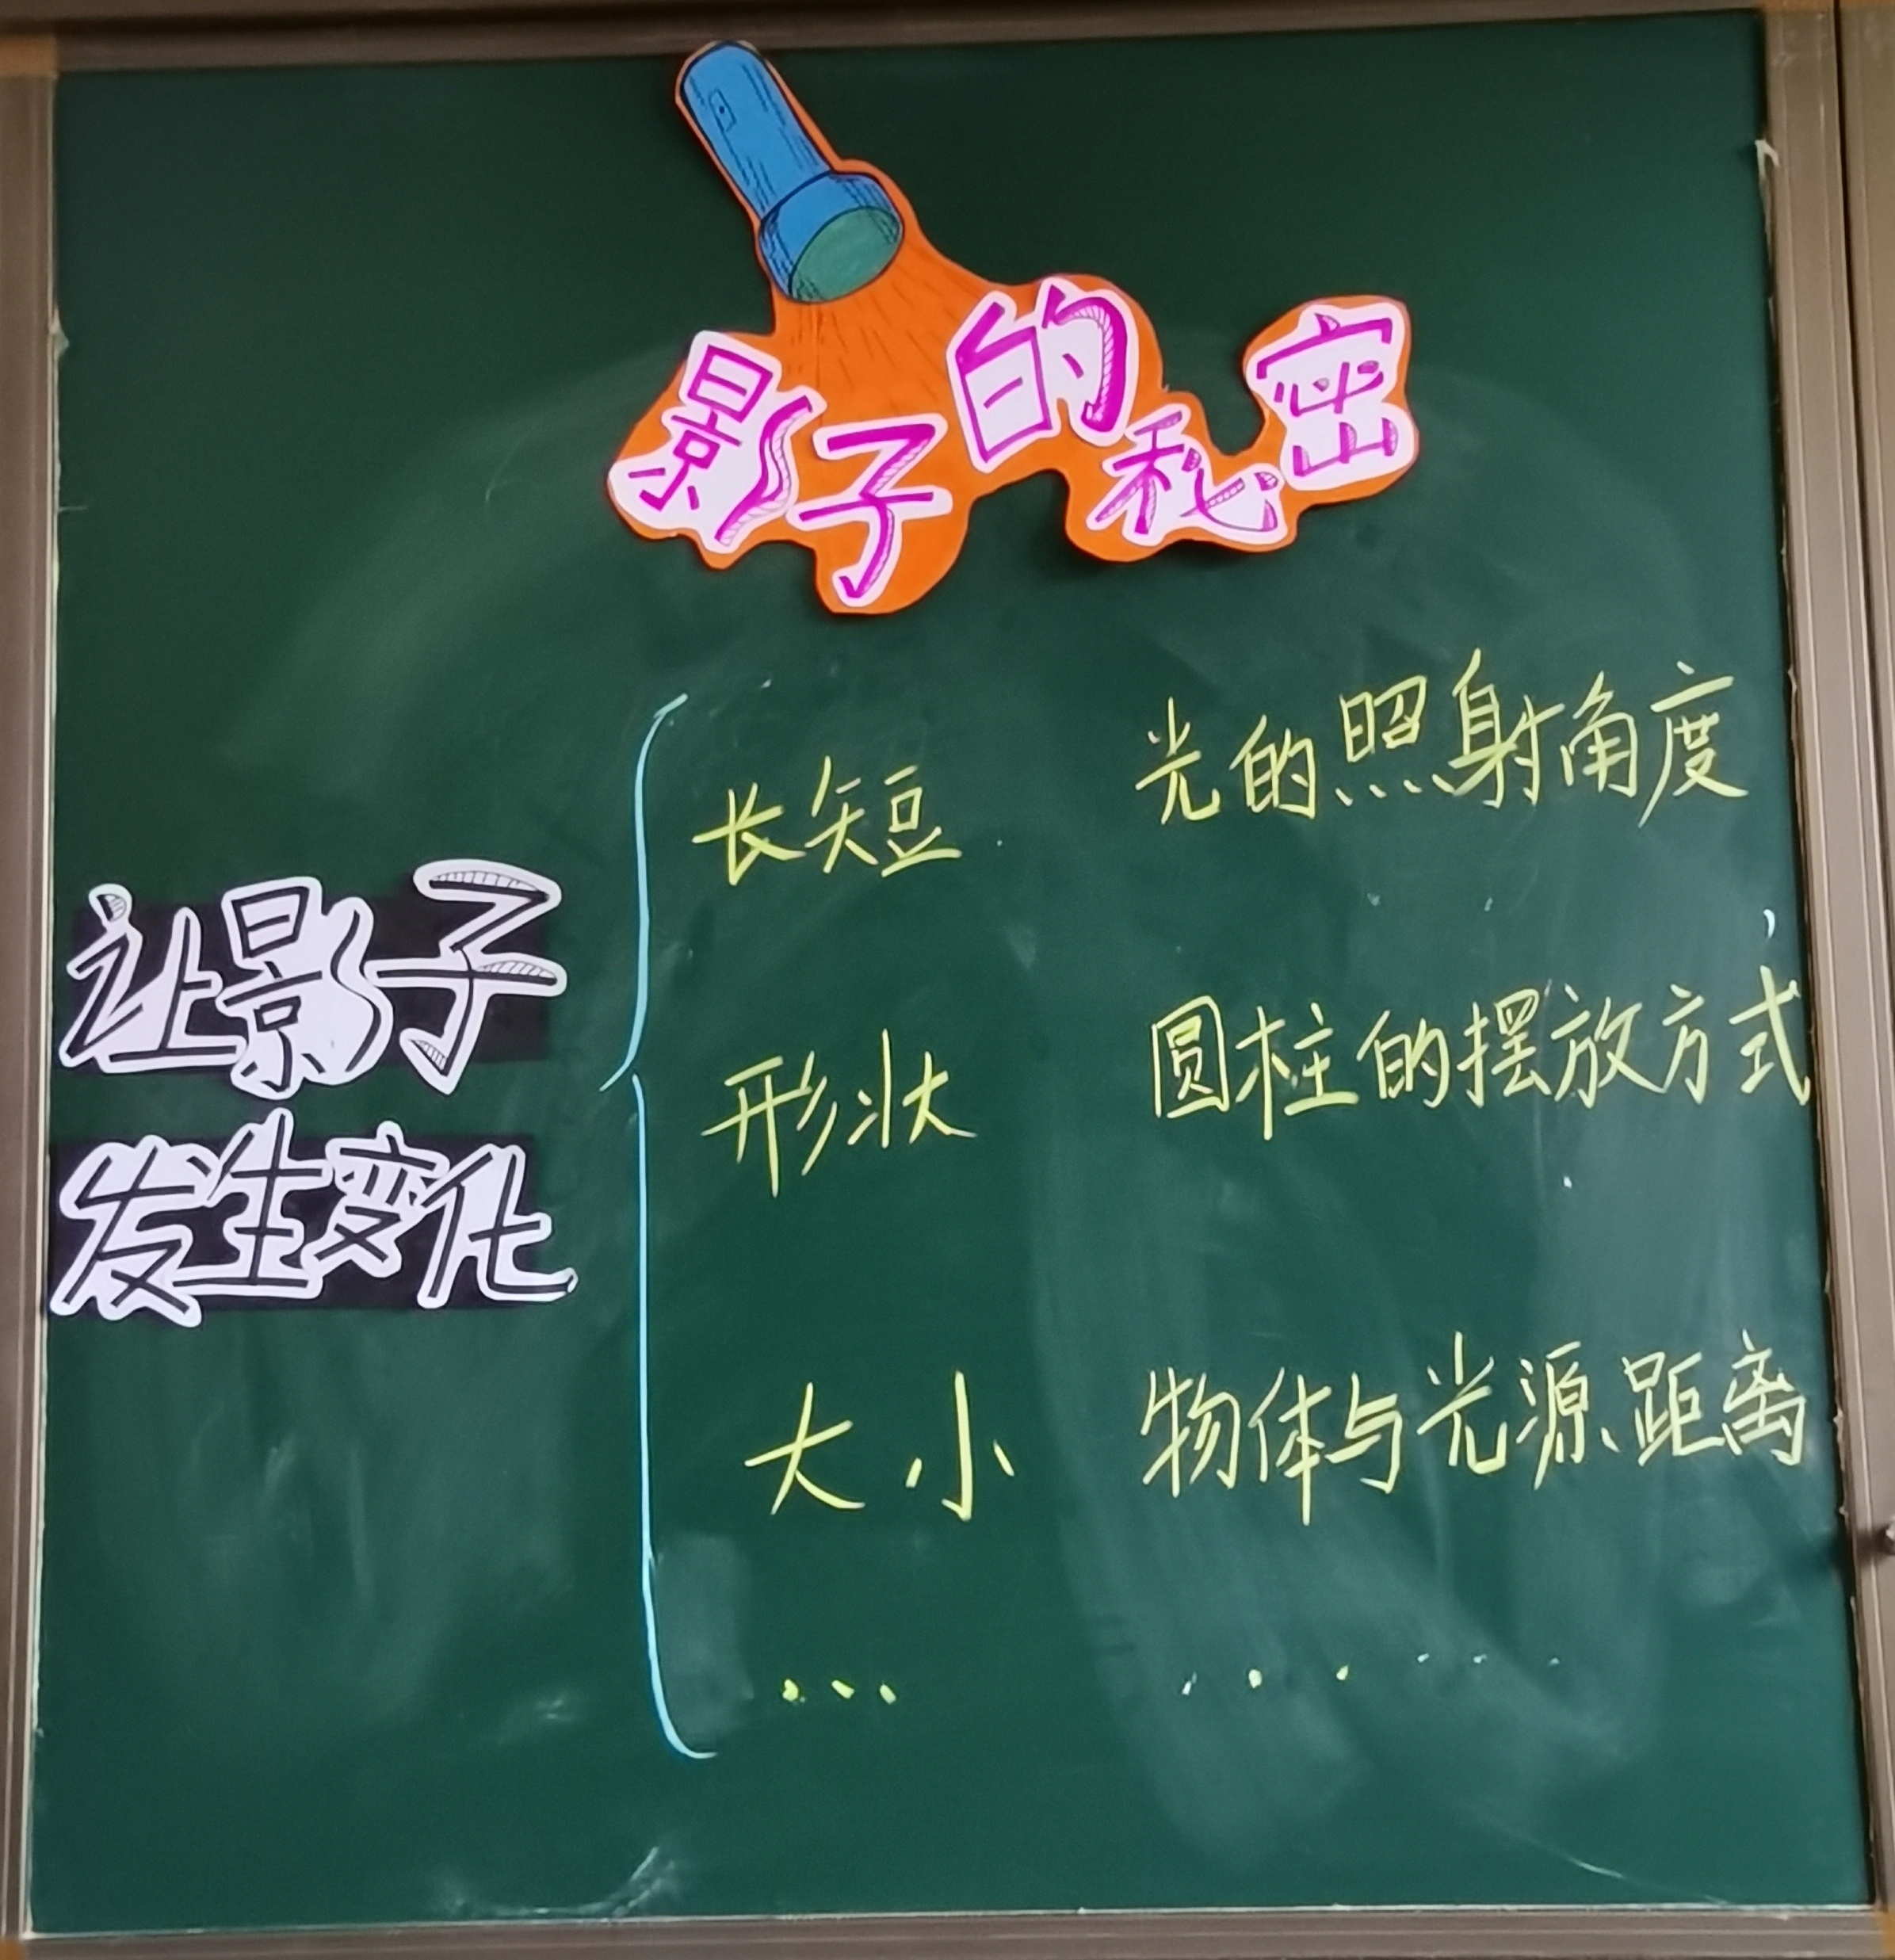 影子的秘密
让影子
发生变化
长短 光的照射角度
形状 圆柱的摆放方式
大小 物体与光源距离
... ......